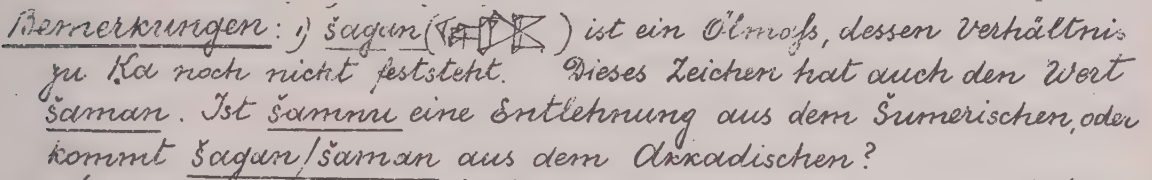 Bemerkungen: 1) šagan () ist ein Ölmaſs, dessen Verhältnis
zu Ka noch nicht feststeht. Dieses Zeichen hat auch den Wert
šaman. Ist šamnu eine Entlehnung aus dem Šumerischen, oder
kommt šagan/šaman aus dem Akkadischen?